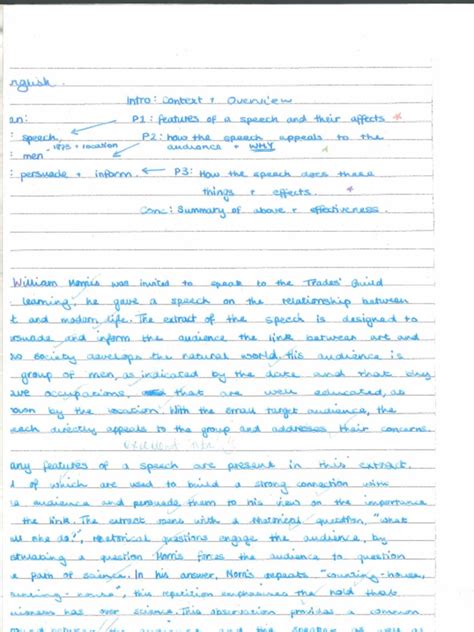 nglish.
Intro: Context + Overview
an: P1: features of a speech and their affects *
: speech, P2: how the speech appeals to the
: men 1893 + location audience + WHY
: persuade + inform. P3: How the speech does these
things + effects. *
Conc: Summary of above + effectiveness.
William Morris was invited to speak to the Trades' Guild
learning; he gave a speech on the relationship between
t and modern life. The extract of the speech is designed to
rsuade and inform the audience the link between art and
society develops the natural world. His audience is
group of men, as indicated by the date and that they
ave occupations, that are well educated, as
own by the location. With the small target audience, the
eech directly appeals to the group and addresses their concerns.
excellent
any features of a speech are present in this extract.
l of which are used to build a strong connection with
e audience and persuade them to his view on the importance
the link. The extract opens with a rhetorical question, "what
all one do?", rhetorical questions engage the audience, by
a question Morris forces the audience to question
e path of science. In his answer, Morris repeats "counting-house,
unting-house"; this repetition emphasises the hold that
has over science. This observation provides a common
between the audience and the speaker as well as